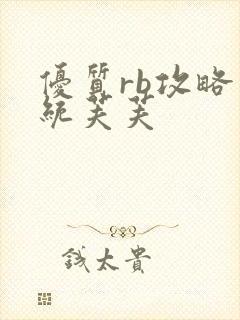 優質rb攻略系
統芙芙
錢太貴